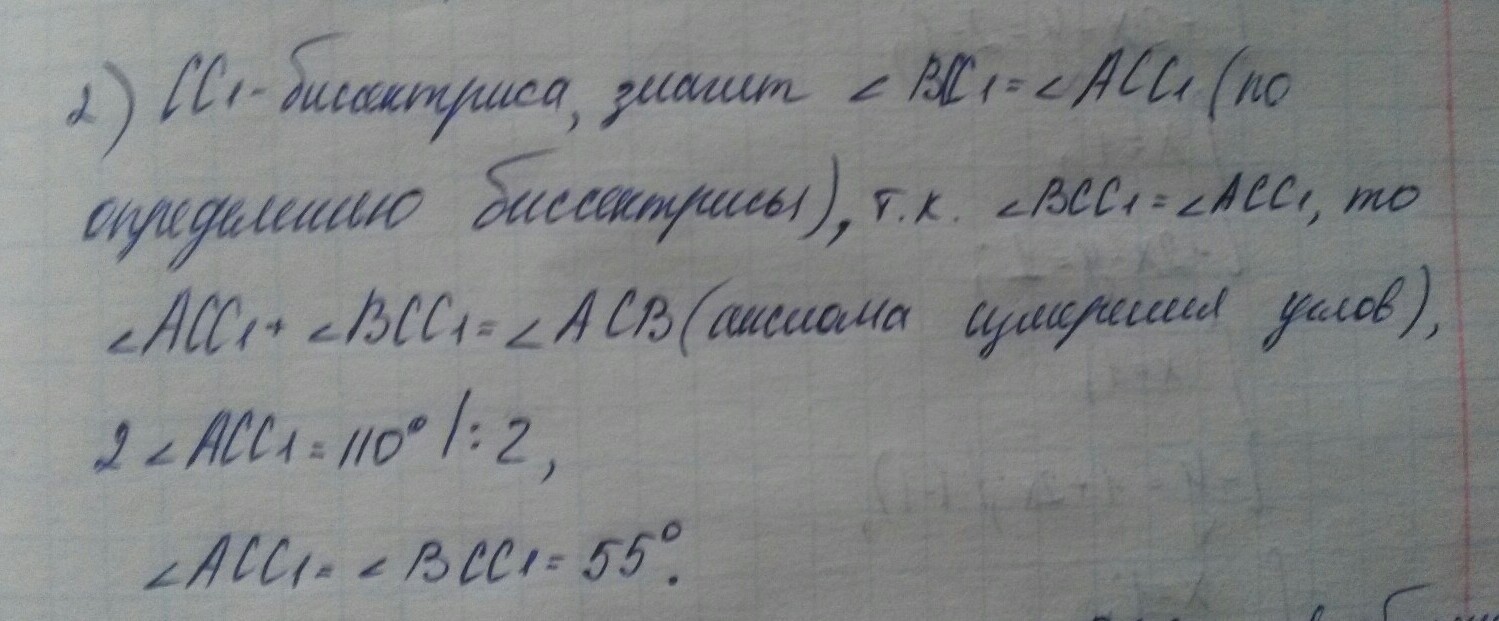 2) CC1 - бисектриса, значит ∠BCC1 = ∠ACC1 (по
определению биссектрисы), т.к. ∠BCC1 = ∠ACC1, то
∠ACC1 + ∠BCC1 = ∠ACB (аксиома измерения углов),
2∠ACC1 = 110° |: 2,
∠ACC1 = ∠BCC1 = 55°.